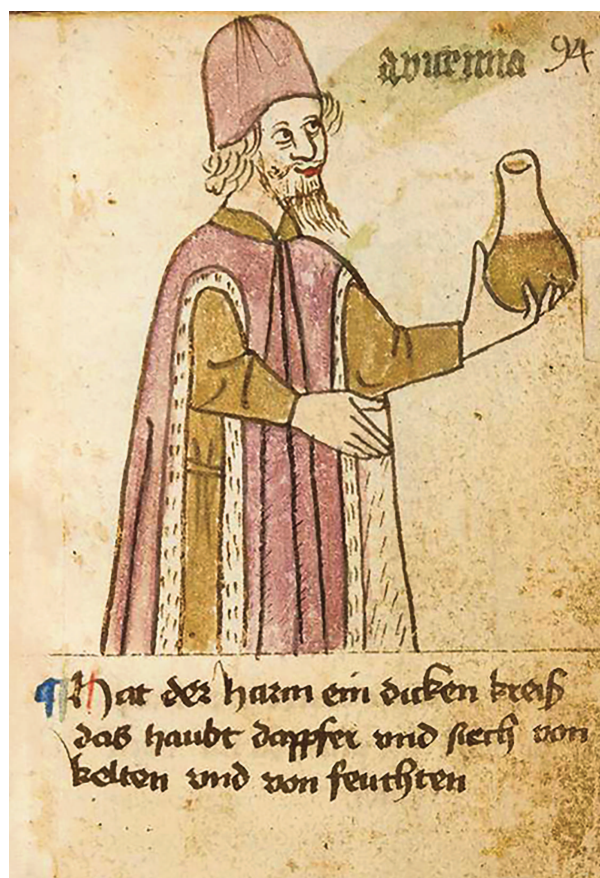 avicenna 94
Hat der harm ein dicken kreiß
das haubt dappfer vnd siech von
kelten vnd von feuchten